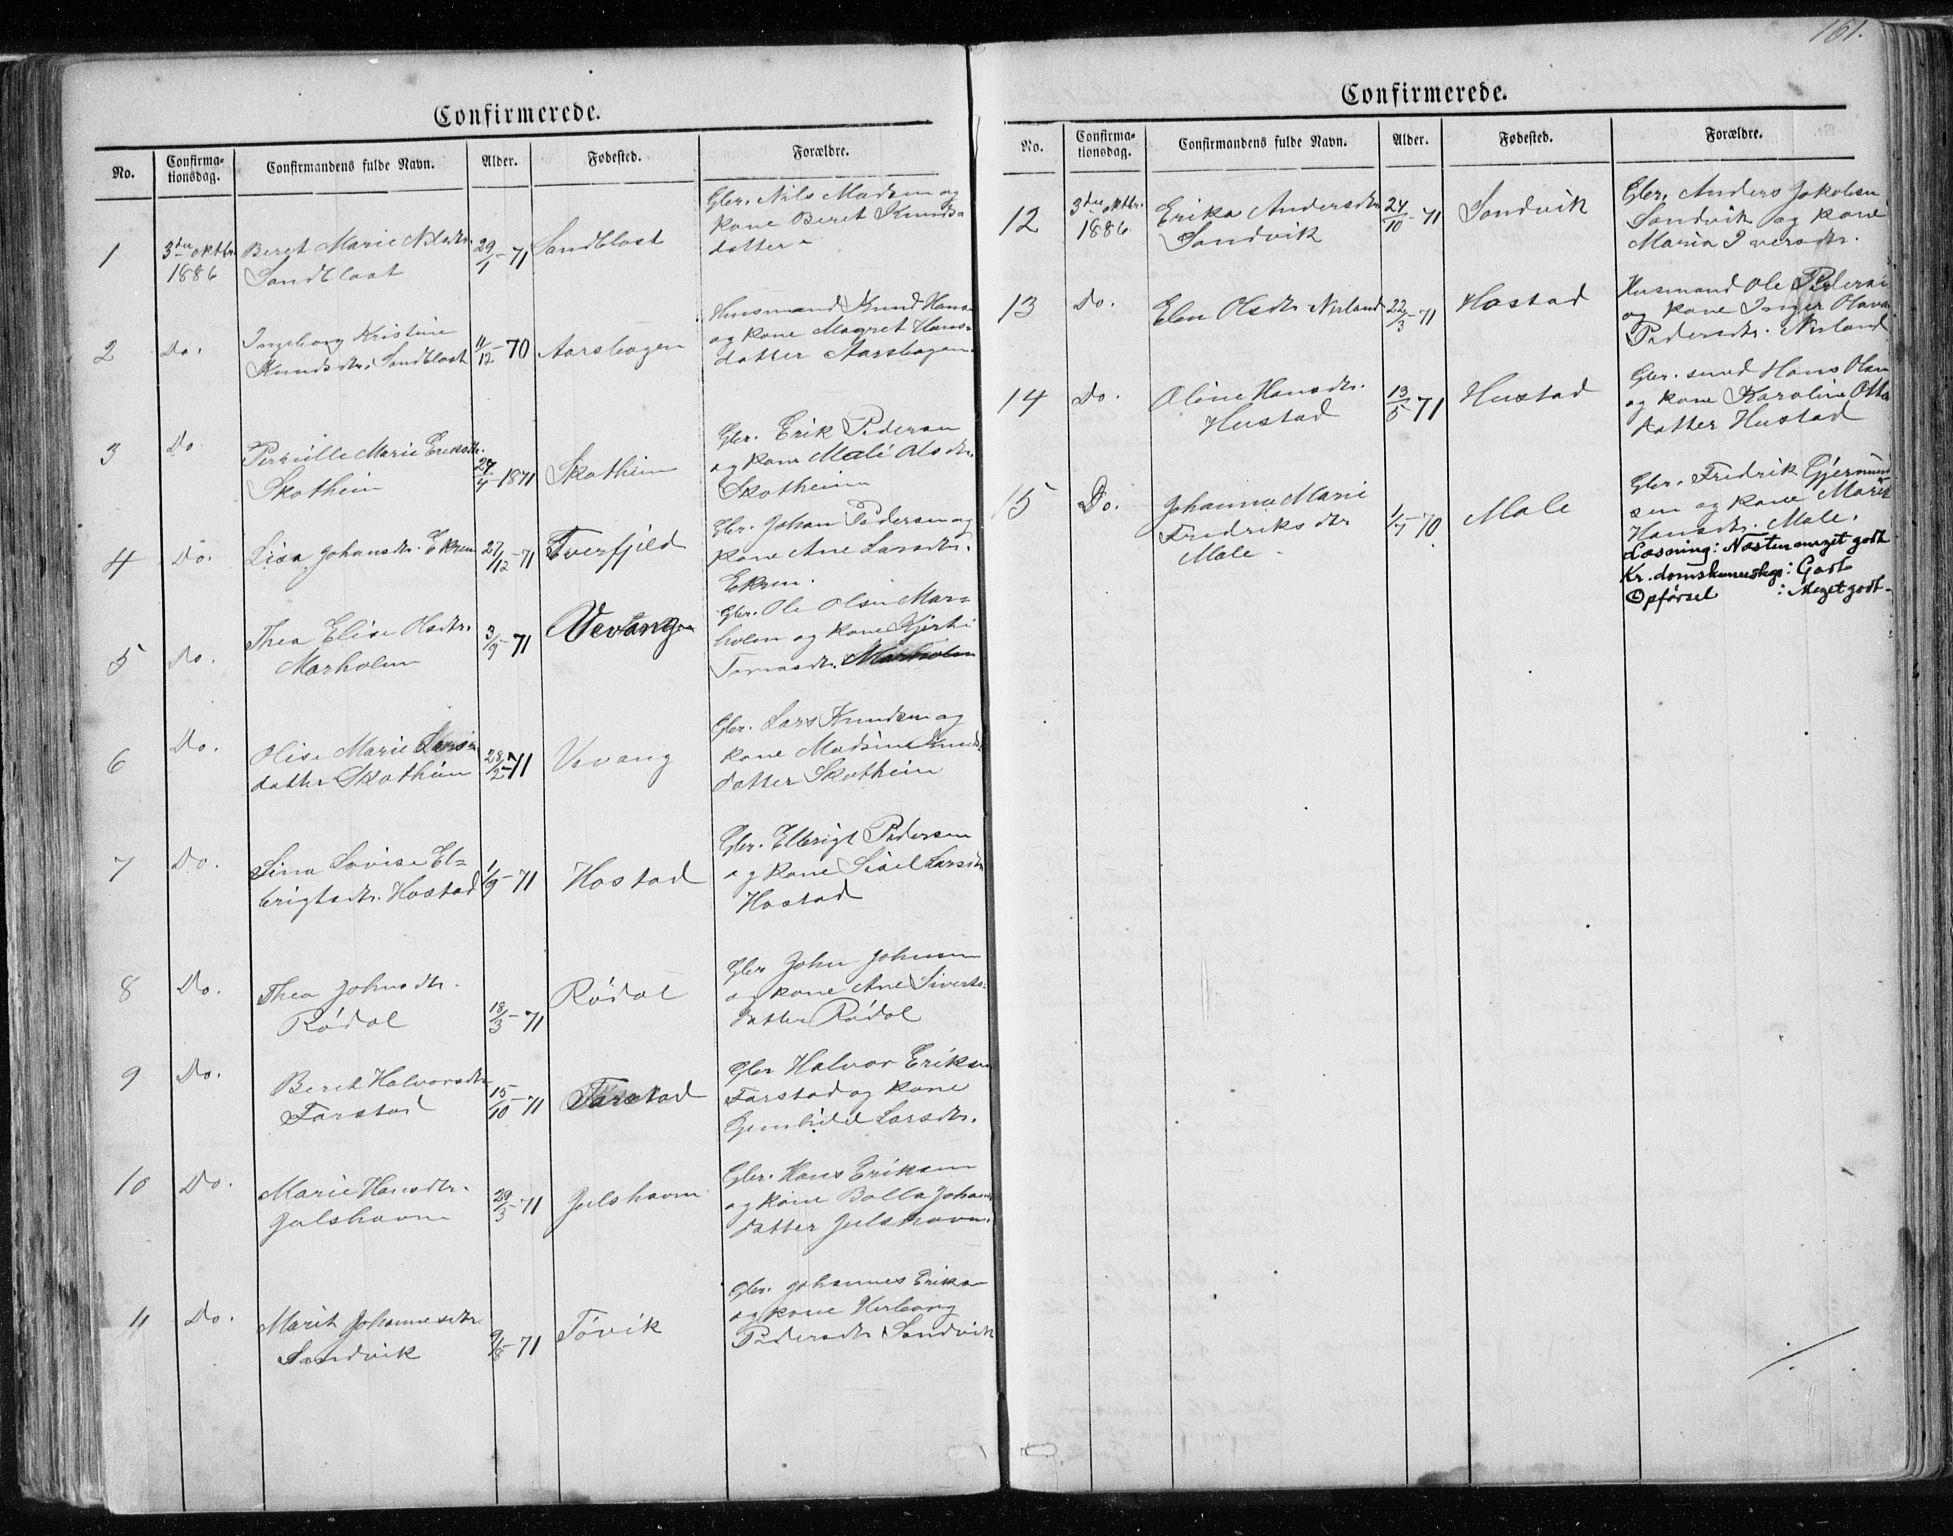 Confirmerede.
No. Confirmationsdag. Confirmandens fulde Navn. Alder. Fødested. Forældre.
1 3die oktbr. 1886 Beret Marie Nilsdtr. Sandblaat 29/1-71 Sandblaat
Gbr. Nils Madsen og
kone Beret Knuds-
datter
2 Do. Ingeborg Kristine Knudsdtr. Sandblaat 11/12-70 Aarsbogen
Husmand Knud Hans
og kone Magret Hans-
datter Aarsbogen.
3 Do Pernille Marie Eriksdtr. Skotheim 27/4-1871 Skotheim
Gbr. Erik Pedersen
og kone Mali Olsdtr.
Skotheim
4 Do. Lisa Johansdtr. Ekren 27/12-71 Tverfjeld
Gbr. Johan Pedersen og
kone Ane Larsdtr.
Ekren.
5 Do. Thea Elise Olsdtr. Marholm 3/9-71 Vevang
Gbr. Ole Olsen Mar-
holm og kone Kjerti
Marholm
6 Do. Olise Marie Lars datter Skotheim 28/2-71 Vevang
Gbr. Lars Knudsen og
kone Madsine Knuds
datter Skotheim
7 Do. Sina Lovise El-
brigtsdtr. Hostad 1/9-71 Hostad
Gbr. Elbrigt Pedersen
og kone Sisel Larsdtr
Hostad
8 Do. Thea Johnsdtr. Rødal 18/3-71 Rødal
Gbr John Johnsen
og kone Ane Siverts-
datter Rødal
9 Do. Beret Halvorsdtr Farstad 15/10-71 Farstad
Gbr Halvor Eriksen
Farstad og kone
Gunhild Larsdtr.
10 Do. Marie Hansdtr. Julshavn 29/3-71 Julshavn
Gbr. Hans Eriksen
og kone Bolla Johans
datter Julshavn.
11 Do. Marit Johannesdtr. Sandvik 9/8-71 Tøvik
Gbr. Johannes Eriks
og kone
Pedersdtr Sandvik
161.
Confirmerede.
No. Confirmationsdag. Confirmandens fulde Navn. Alder. Fødested. Forældre.
12 3die oktbr. 1886 Erika Andersdtr Sandvik 24/10-71 Sandvik
Gbr. Anders Jakobsen
Sandvik og kone
Maria Iversdtr.
13 Do. Elen Olsdtr Nerland 22/3-71 Hostad
Husmand Ole Peders
og kone Inger Olava
Pedersdtr. Nerland
14 Do. Oline Hansdtr. Hustad 13/5-71 Hustad
Gbr. smed Hans Olsen
og kone Karoline Otte
datter Hustad
15 Do. Johanna Marie
Fredriksdtr
Male 1/7-70 Male
Gbr. Fredrik Gjermund
sen og kone Marit
Hansdtr. Male.
Læsning: Næsten meget godt
Kr.domskundskap: Godt
Opførsel : Meget godt-